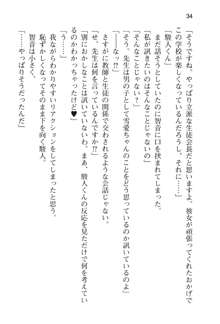 94
「ですね。やっぱり立派な生徒会長だと思います。彼女が頑張ってくれたおかげで
この学校が楽しくなっているんだろうし、それに……」
「そんなことを訊いているんじゃないの」
まだ話そうとしていたのに智音に口を挟まれてしまった。
「私が訊きたいのはそんなことではなく、もっと単純なことよ」
「っていうと?」
「そう、先生は男として雪愛ちゃんのことをどう思っているのか訊いているのよ」
なっ!?
さすがに教師と生徒の関係で交わされるような会話じゃない。
「せ、先生は何を言っているんですか!?」
「ああ、やっぱりいいわ。もう訊いていないわ。駿人くんの反応を見ただけで何を考えてい
るのかわかっちゃったけど♥」
「う……」
我ながらわかりやすいリアクションをしてしまったと思う。
恥ずかしくなってそのまま下を向く駿人。
智音は小さく、
「……やっぱりそうだったんだ」